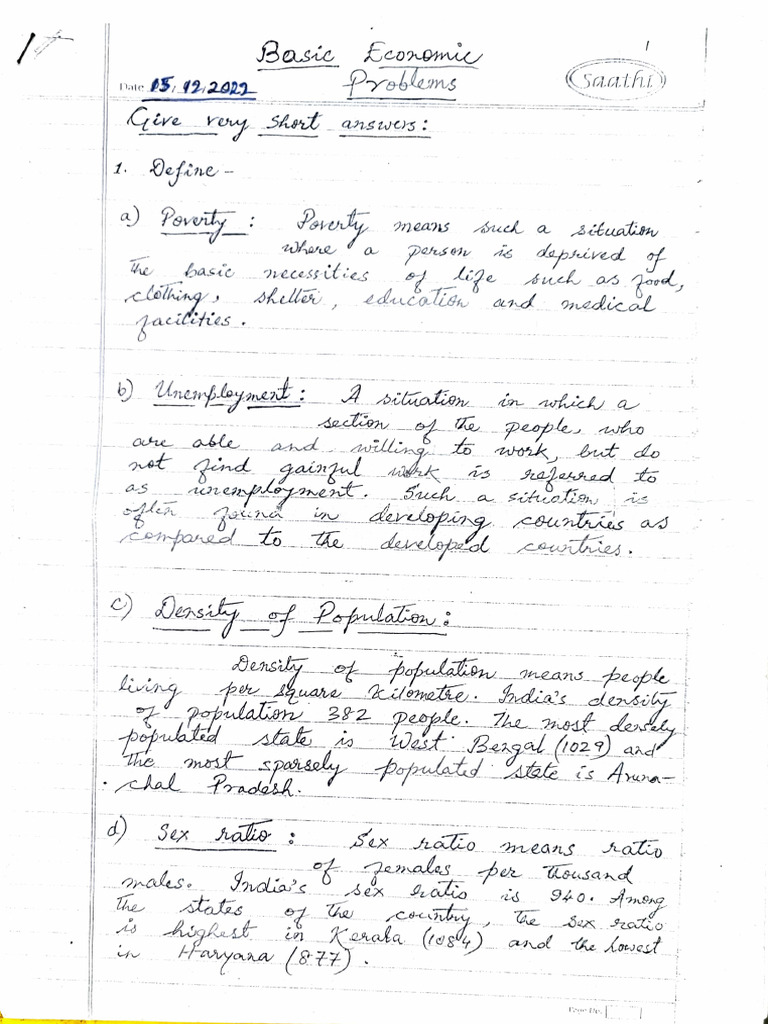 1
Basic Economic
Date 15.12.2022 Problems saathi
Give very short answers:
1. Define -
a) Poverty : Poverty means such a situation
where a person is deprived of
the basic necessities of life such as food,
clothing, shelter, education and medical
facilities.
b) Unemployment : A situation in which a
section of the people, who
are able and willing to work, but do
not find gainful work is referred to
as unemployment. Such a situation is
often found in developing countries as
compared to the developed countries.
c) Density of Population :
Density of population means people
living per square Kilometre. India's density
of population 382 people. The most densely
populated state is West Bengal (1029) and
the most sparsely populated state is Aruna-
chal Pradesh.
d) Sex ratio : Sex ratio means ratio
of females per thousand
males. India's sex ratio is 940. Among
the states of the country, the sex ratio
is highest in Kerala (1084) and the lowest
in Haryana (877).
Page No.